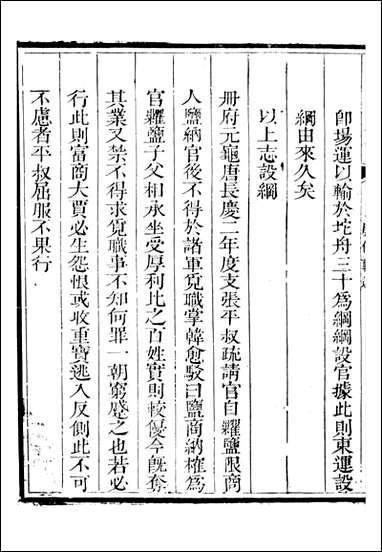 卽場運以輸於垞舟三十爲綱綱設官據此則東運設
綱由來久矣
以上志設綱
冊府元龜唐長慶二年度支張平叔疏請官自糶鹽限商
人鹽納官後不得於諸軍覓職掌韓愈駁曰鹽商納榷爲
官糶鹽子父相承坐受厚利比之百姓實則較優今旣奪
其業又禁不得求覓職事不知何罪一朝窮蹙之也若必
行此則富商大賈必生怨恨或收重寶逃入反側此不可
不慮者平叔屈服不果行